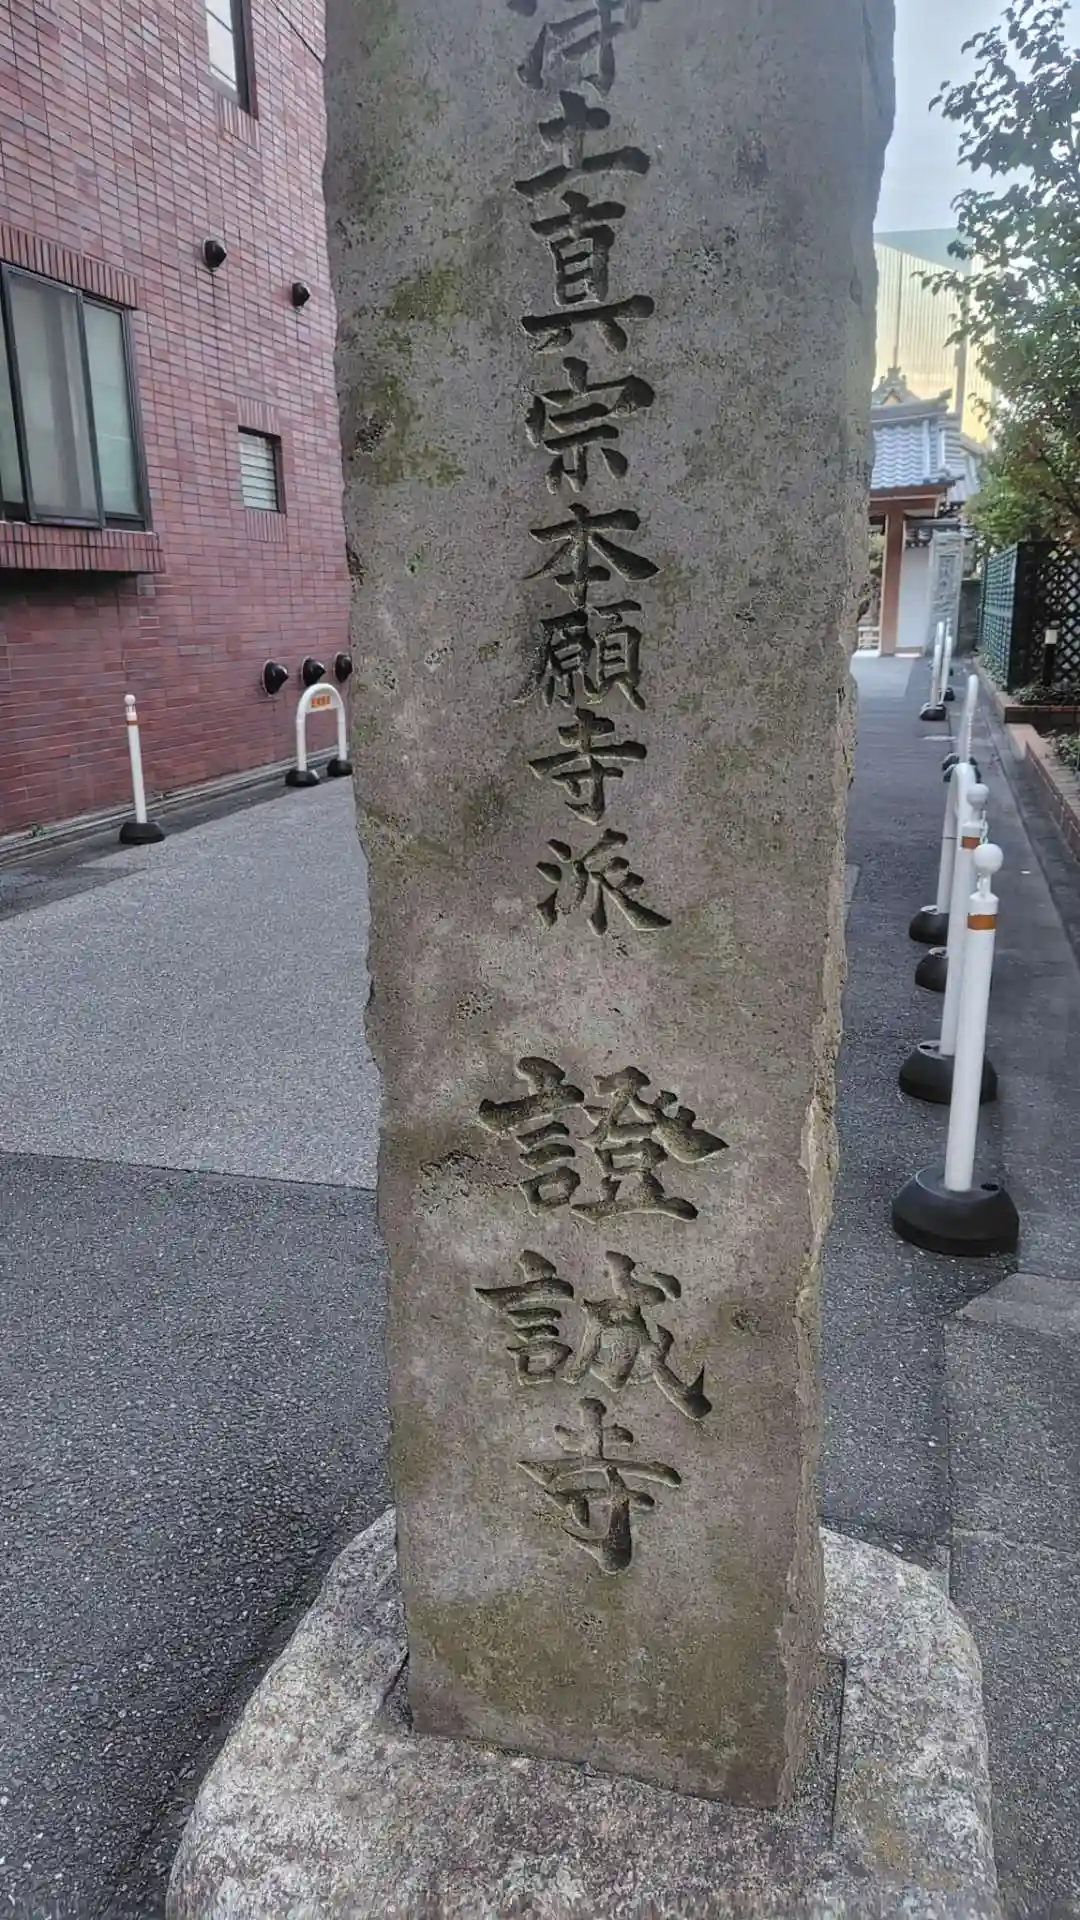 浄土真宗本願寺派 證誠寺